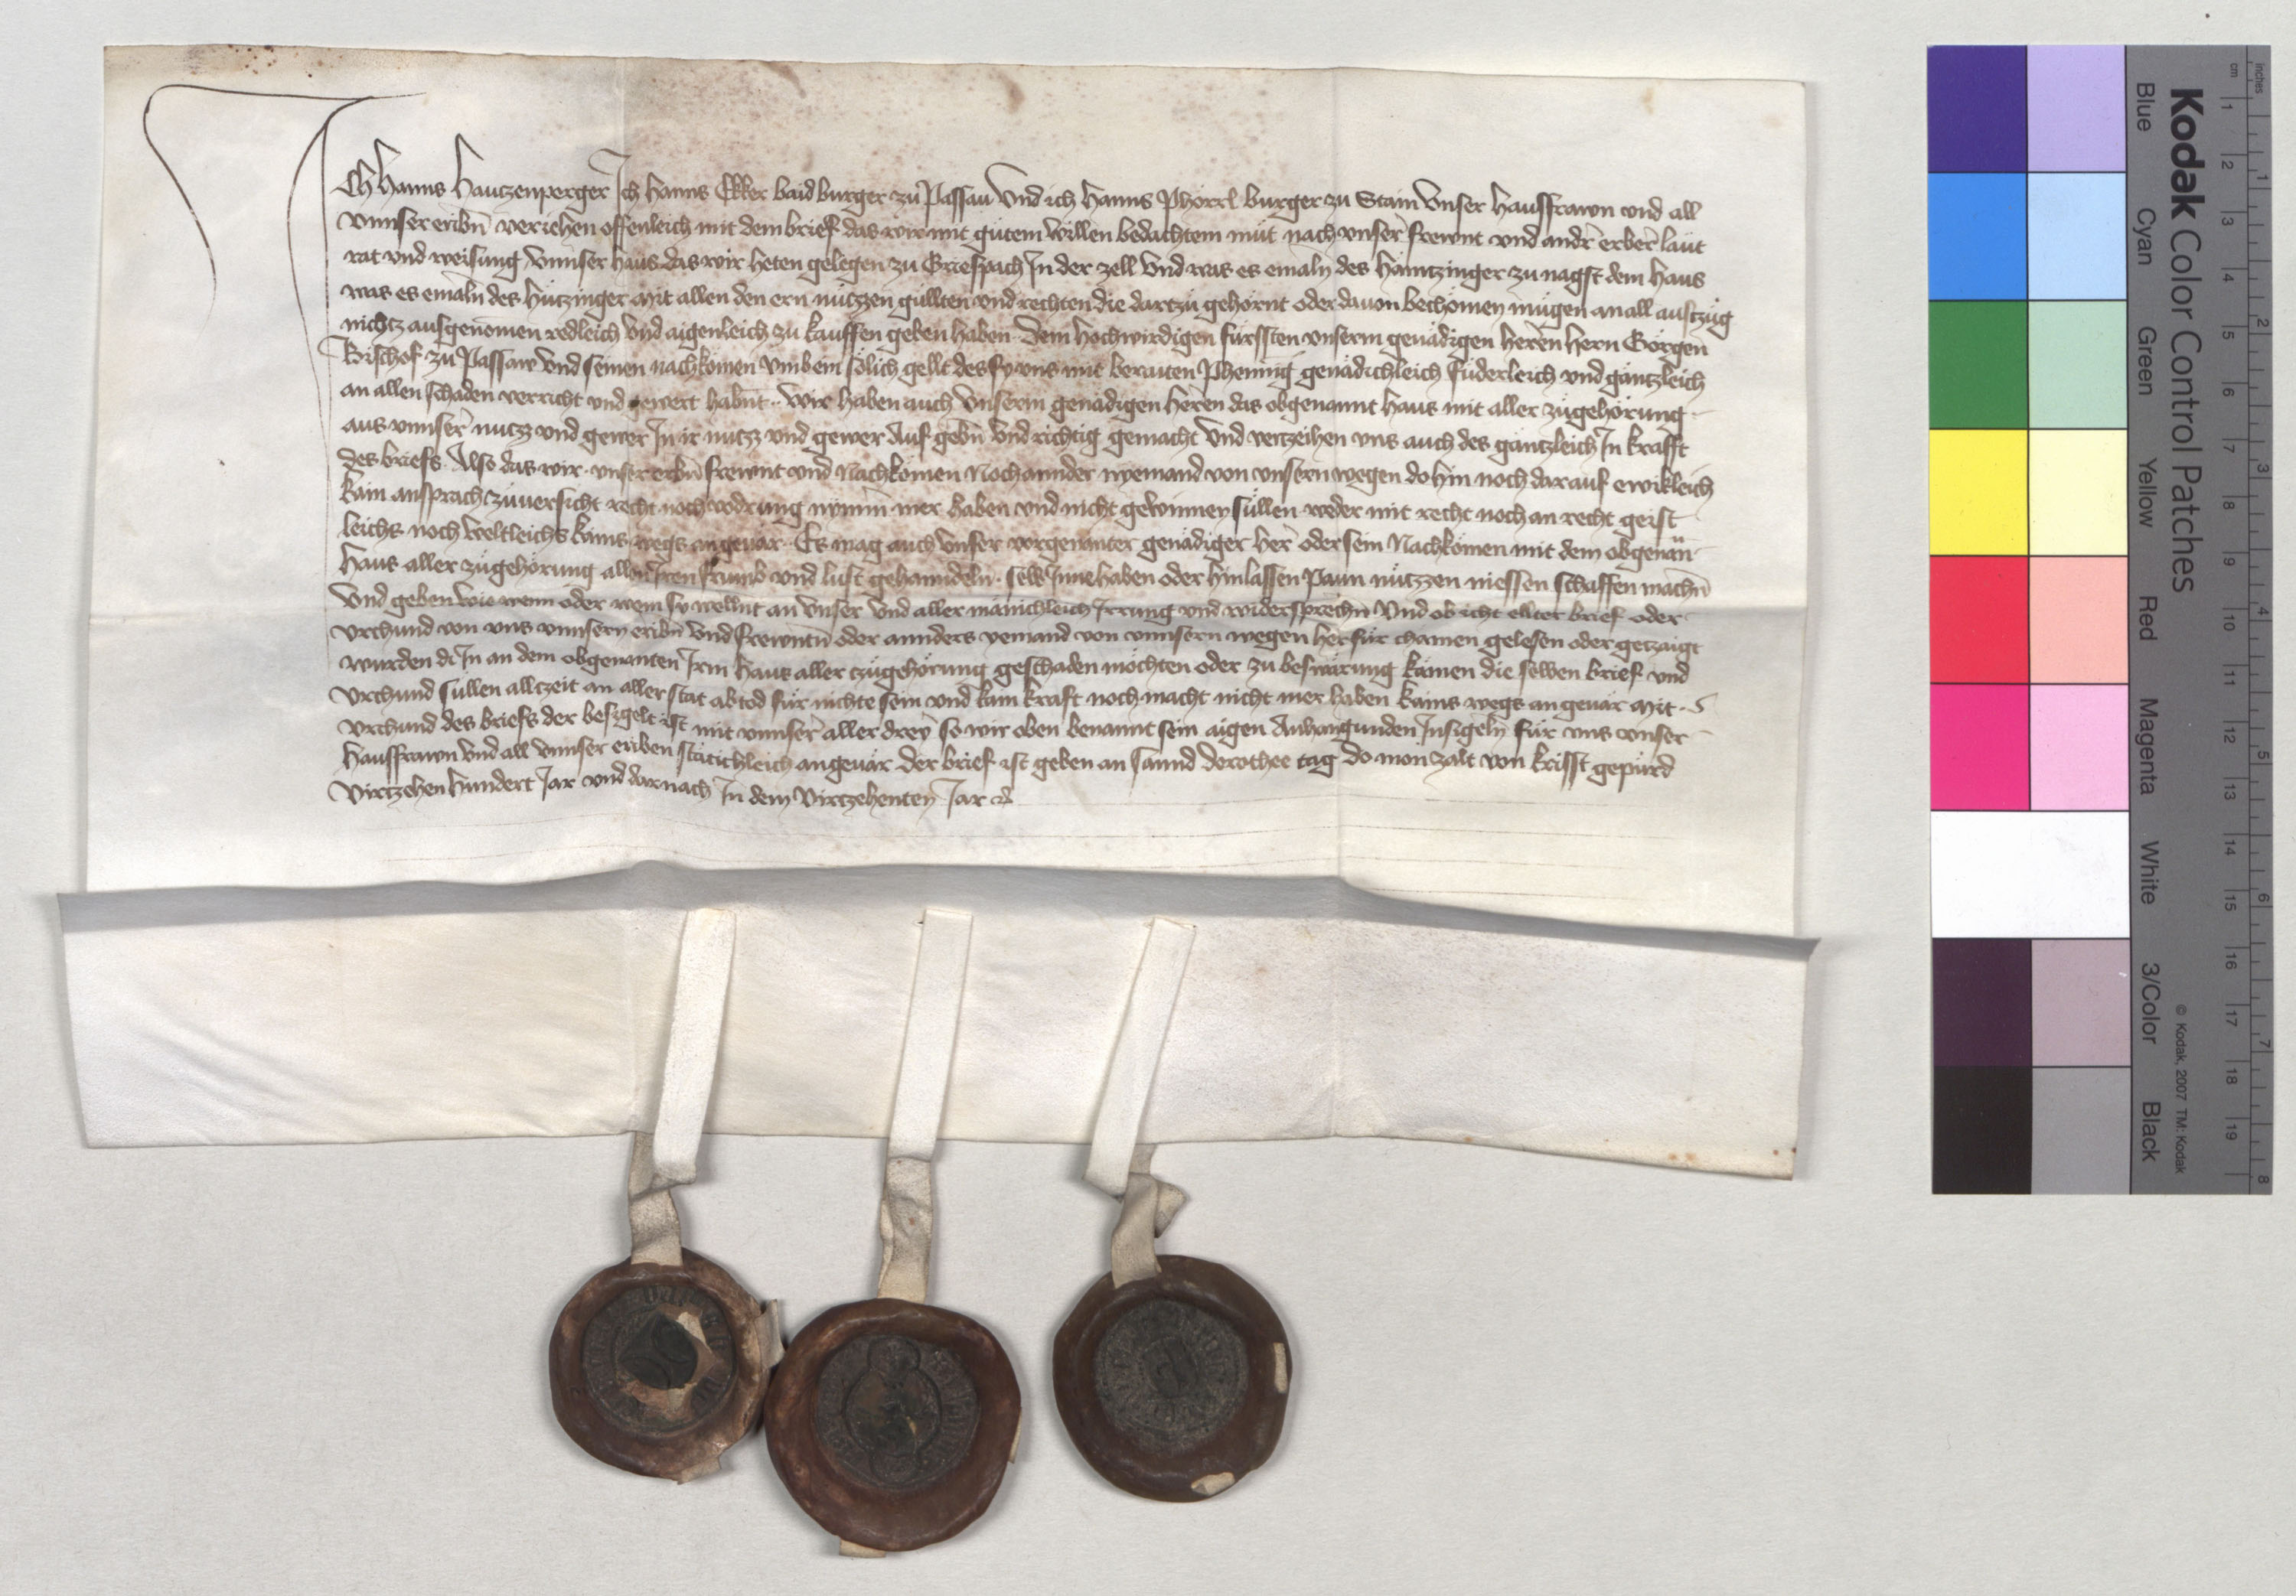 Ich Hanns Hautzenperger Ich Hanns Ekker baid burger zu Passau Vnd ich Hanns Phörrl burger zu Stain Vnser hausfrawn vnd all
vnnser eribn̄ veriehen offenleich mit dem brief das wir mit gutem willen bedachtem müt nach vnser frewnt vnd andr̄ erber̄ läut
rat vnd weisung Vnnser haus das wir heten gelegen zu Griespach In der zell Vnd was es emaln des Häintzinger zu nagst dem Haus
was es emaln des Hützinger mit allen den ern nützzen güllten vnd rechten die dartzu gehörnt oder dauon bechömen mügen an all auszüg
nichtz ausgenomen redleich Vnd aigenleich zu kauffen geben haben. Dem hochwirdigen fürssten vnserm genädigen herren hern Görgen
Bischof zu Passaw Vnd seinen nachkömen Vmb ein sölich gellt des sy vns mit beraiten Phennig genädichleich füderleich vnd gäntzleich
an allen schaden verricht vnd gewert habnt. Wir haben auch Vnserm genädigen Heren das obgenannt haus mit aller zugehörung
aus vnnser̄ nutz vnd gewer In ir nutz vnd gewer Auf gebn̄ Vnd richtig gemacht Vnd verzeihen vns auch des gäntzleich In krafft
des briefs. Also das wir vnser erbn̄ frewnt vnd Nachkömen Noch annder nyemand von vnsern wegen do hin noch darauf ewikleich
kain ansprach züuersicht recht noch vodrung nymm mer haben vnd nicht gewinnen süllen weder mit recht noch an recht geist
leichs noch Weltleichs kains wegs angeuär. Es mag auch Vnser vorgenanter genädiger her oder sein Nachkömen mit dem obgenan̄
Haus aller zugehörung allen Iren frumb vnd lust gehanndeln. selb Inne haben oder hinlassen Paun nützzen niessen schaffen machn̄
Vnd geben wie wenn oder wem sy wellnt an Vnser Vnd aller mänichleich Irrung vnd widersprechn̄ Vnd ob icht ellter brief oder
Vrchund von vns vnnsern eribn̄ Vnd frewntn̄ oder annders yemand von vnnsern wegen herfür chämen gelesen oder getzaigt
wurden di In an dem obgenanten Irm Haus aller czugehörung geschaden möchten oder zu beswärung kämen die selben brief vnd
Vrchund süllen allczeit an aller stat ab tod für nichte sein vnd kain kraft noch macht nicht mer haben kains wegs angeuär Mit
Vrchund des briefs der besigelt ist mit vnnser̄ aller dreÿ so wir oben benannt sein aigen Anhangunden Insigeln̄ für vns vnser
hausfrawn Vnd all Vnnser eriben stätichleich angeuär Der brief ist geben an sannd dorothee tag Do mon zalt von kristt gepürd
Virtzehen hundert Jar vnd darnach In dem Virtzehenten Jar
Kodak Color Control Patches
Blue Cyan Green Yellow Red Magenta White 3/Color Black
© Kodak, 2007 TM: Kodak
cm 1 2 3 4 5 6 7 8 9 10 11 12 13 14 15 16 17 18 19
inches 1 2 3 4 5 6 7 8